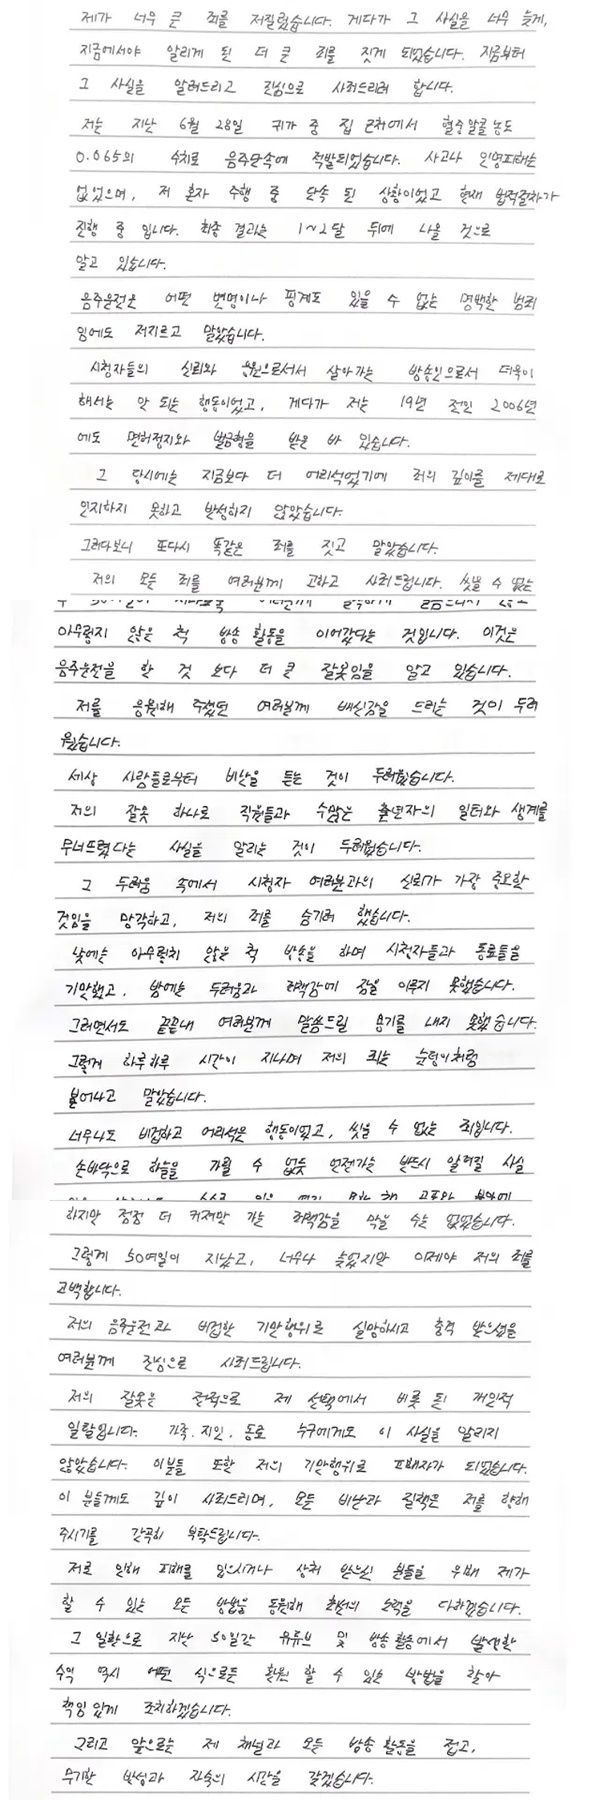 제가 너무 큰 죄를 저질렀습니다. 게다가 그 사실을 너무 늦게,
지금에서야 알리게 된 더 큰 죄를 짓게 되었습니다. 지금부터
그 사실을 알려드리고 진심으로 사죄드리려 합니다.
저는 지난 6월 28일 귀가 중 집 근처에서 혈중알콜농도
0.065의 수치로 음주단속에 적발되었습니다. 사고나 인명피해는
없었으며, 저 혼자 주행 중 단속 된 상황이었고 현재 법적절차가
진행 중 입니다. 최종 결과는 1~2달 뒤에 나올 것으로
알고 있습니다.
음주운전은 어떤 변명이나 핑계도 있을 수 없는 명백한 범죄
임에도 저지르고 말았습니다.
시청자들의 신뢰와 응원으로서서 살아가는 방송인으로서 더욱이
해서는 안 되는 행동이었고, 게다가 저는 19년 전인 2006년
에도 면허정지와 벌금형을 받은 바 있습니다.
그 당시에는 지금보다 더 어리석었기에 죄의 깊이를 제대로
인지하지 못하고 반성하지 않았습니다.
그러다보니 또다시 똑같은 죄를 짓고 말았습니다.
저의 모든 죄를 여러분께 고하고 사죄드립니다. 씻을 수 없는
아무렇지 않은 척 방송 활동을 이어갔다는 것입니다. 이것은
음주운전을 한 것 보다 더 큰 잘못임을 알고 있습니다.
저를 응원해 주셨던 여러분께 배신감을 드리는 것이 두려
웠습니다.
세상 사람들로부터 비난을 듣는 것이 두려웠습니다.
저의 잘못 하나로 직원들과 수많은 출연자의 일터와 생계를
무너뜨렸다는 사실을 알리는 것이 두려웠습니다.
그 두려움 속에서 시청자 여러분과의 신뢰가 가장 중요한
것임을 망각하고, 저의 죄를 숨기려 했습니다.
낮에는 아무렇지 않은 척 방송을 하며 시청자들과 동료들을
기만했고, 밤에는 두려움과 죄책감에 잠을 이루지 못했습니다.
그러면서도 끝끝내 여러분께 말씀드릴 용기를 내지 못했습니다.
그렇게 하루하루 시간이 지나며 저의 죄는 눈덩이처럼
불어나고 말았습니다.
너무나도 비겁하고 어리석은 행동이었고, 씻을 수 없는 죄입니다.
손바닥으로 하늘을 가릴 수 없듯 언젠가는 반드시 알려질 사실
하지만 점점 더 커져만 가는 죄책감을 막을 수는 없었습니다.
그렇게 50여일이 지났고, 너무나 늦었지만 이제야 저의 죄를
고백합니다.
저의 음주운전과 비겁한 기만행위로 실망하시고 충격 받으셨을
여러분께 진심으로 사죄드립니다.
저의 잘못은 전적으로 제 선택에서 비롯 된 개인적
일탈입니다. 가족, 지인, 동료 누구에게도 이 사실을 알리지
않았습니다. 이분들 또한 저의 기만행위로 피해자가 되었습니다.
이 분들께도 깊이 사죄드리며, 모든 비난과 질책은 저를 향해
주시기를 간곡히 부탁드립니다.
저로 인해 피해를 입으시거나 상처 받으신 분들을 위해 제가
할 수 있는 모든 방법을 동원해 최선의 노력을 다하겠습니다.
그 일환으로 지난 50일간 유튜브 및 방송 활동에서 발생한
수익 역시 어떤 식으로든 환원 할 수 있는 방법을 찾아
책임 있게 조치하겠습니다.
그리고 앞으로는 제 채널과 모든 방송 활동을 접고,
무기한 반성과 자숙의 시간을 갖겠습니다.